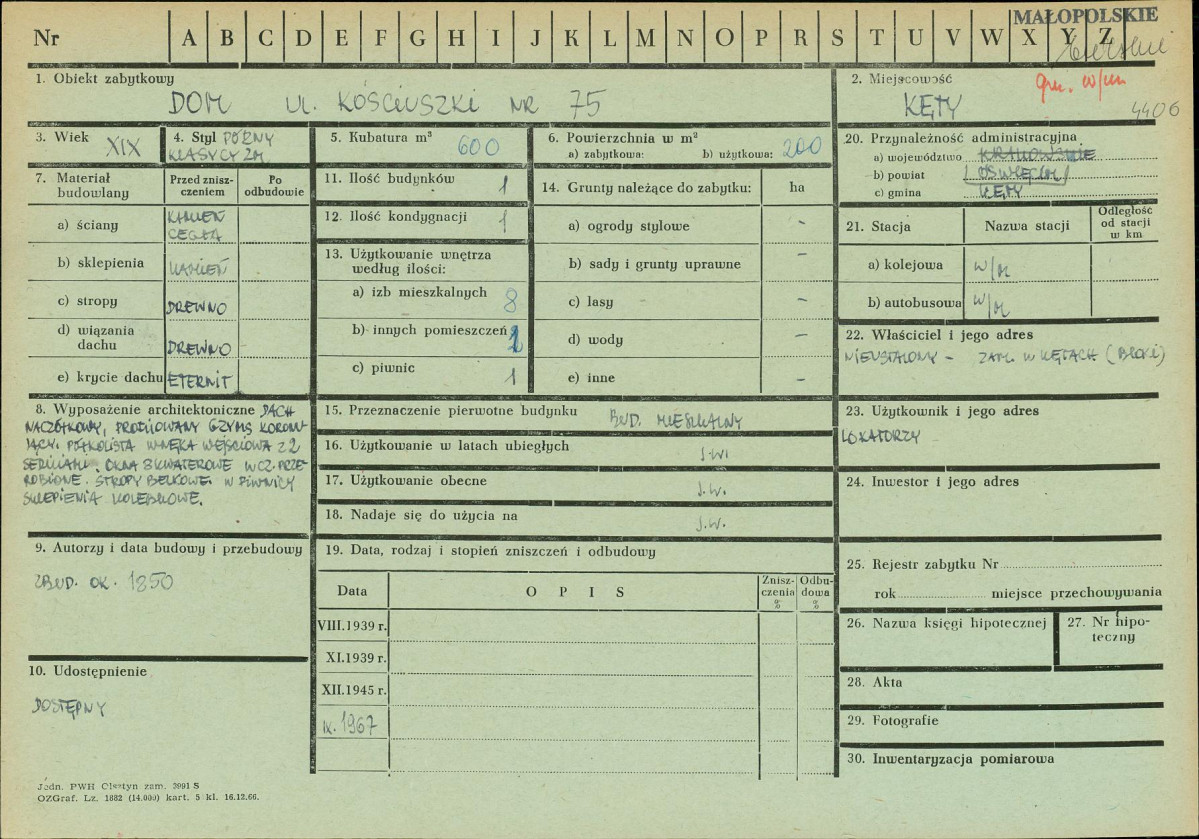 MAŁOPOLSKIE
Nr A B C D E F G H I J K L M N O P R S T U V W X Y Z
1. Obiekt zabytkowy
DOM UL. KOŚCIUSZKI NR 75
2. Miejscowość
gm. w/m
KĘTY
4406
3. Wiek XIX
4. Styl PÓŹNY
KLASYCYZM
5. Kubatura m³ 600
6. Powierzchnia w m²
a) zabytkowa: b) użytkowa: 200
20. Przynależność administracyjna
a) województwo KRAKOWSKIE
b) powiat (OŚWIĘCIM)
c) gmina KĘTY
7. Materiał
budowlany
Przed znisz-
czeniem
Po
odbudowie
a) ściany KAMIEŃ
CEGŁA
b) sklepienia KAMIEŃ
c) stropy DREWNO
d) wiązania
dachu DREWNO
e) krycie dachu ETERNIT
11. Ilość budynków 1
12. Ilość kondygnacji 1
13. Użytkowanie wnętrza
według ilości:
a) izb mieszkalnych 8
b) innych pomieszczeń
c) piwnic 1
14. Grunty należące do zabytku: ha
a) ogrody stylowe –
b) sady i grunty uprawne –
c) lasy –
d) wody –
e) inne –
21. Stacja Nazwa stacji
Odległość
od stacji
w km
a) kolejowa w/m
b) autobusowa w/m
22. Właściciel i jego adres
NIEUSTALONY – ZAM. W KĘTACH (BLOKI)
8. Wyposażenie architektoniczne DACH
NACZÓŁKOWY, PROFILOWANY GZYMS KORONU-
JĄCY. PÓŁKOLISTA WNĘKA WEJŚCIOWA Z 2
SEDILIAMI. OKNA 8 KWATEROWE W CZ. PRZE-
ROBIONE. STROPY BELKOWE. W PIWNICY
SKLEPIENIA KOLEBKOWE.
15. Przeznaczenie pierwotne budynku BUD. MIESZKALNY
16. Użytkowanie w latach ubiegłych J.W.
17. Użytkowanie obecne J.W.
18. Nadaje się do użycia na J.W.
23. Użytkownik i jego adres
LOKATORZY
24. Inwestor i jego adres
9. Autorzy i data budowy i przebudowy
ZBUD. OK. 1850
19. Data, rodzaj i stopień zniszczeń i odbudowy
Data OPIS
Znisz-
czenia
%
Odbu-
dowa
%
VIII.1939 r.
XI.1939 r.
XII.1945 r.
IX. 1967
25. Rejestr zabytku Nr
rok miejsce przechowywania
26. Nazwa księgi hipotecznej
27. Nr hipo-
teczny
28. Akta
29. Fotografie
30. Inwentaryzacja pomiarowa
10. Udostępnienie
DOSTĘPNY
Jedn. PWH Olsztyn zam. 3991 S
OZGraf. Lz. 1882 (14.000) kart. 5 kl. 16.12.66.